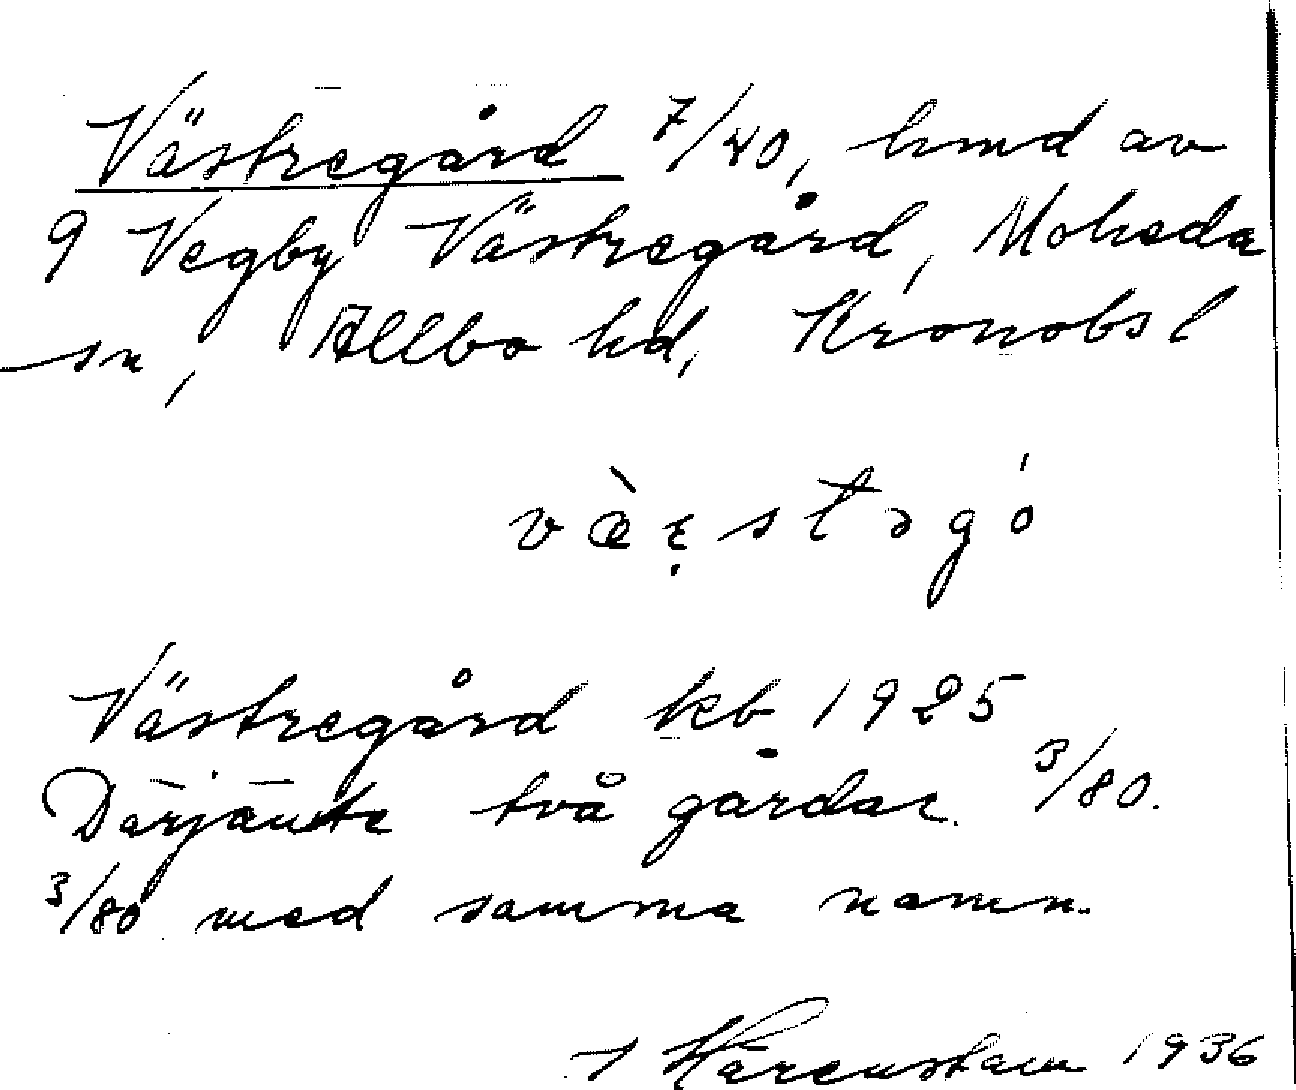 Västregård 7/40, hmd av
9 Vegby Västregård, Moheda
sn, Allbo hd, Kronobs l
væ̀ɛ̣stəgó
Västregård kb 1925
Därjämte två gårdar 3/80.
3/80 med samma namn.
Härenstam 1936